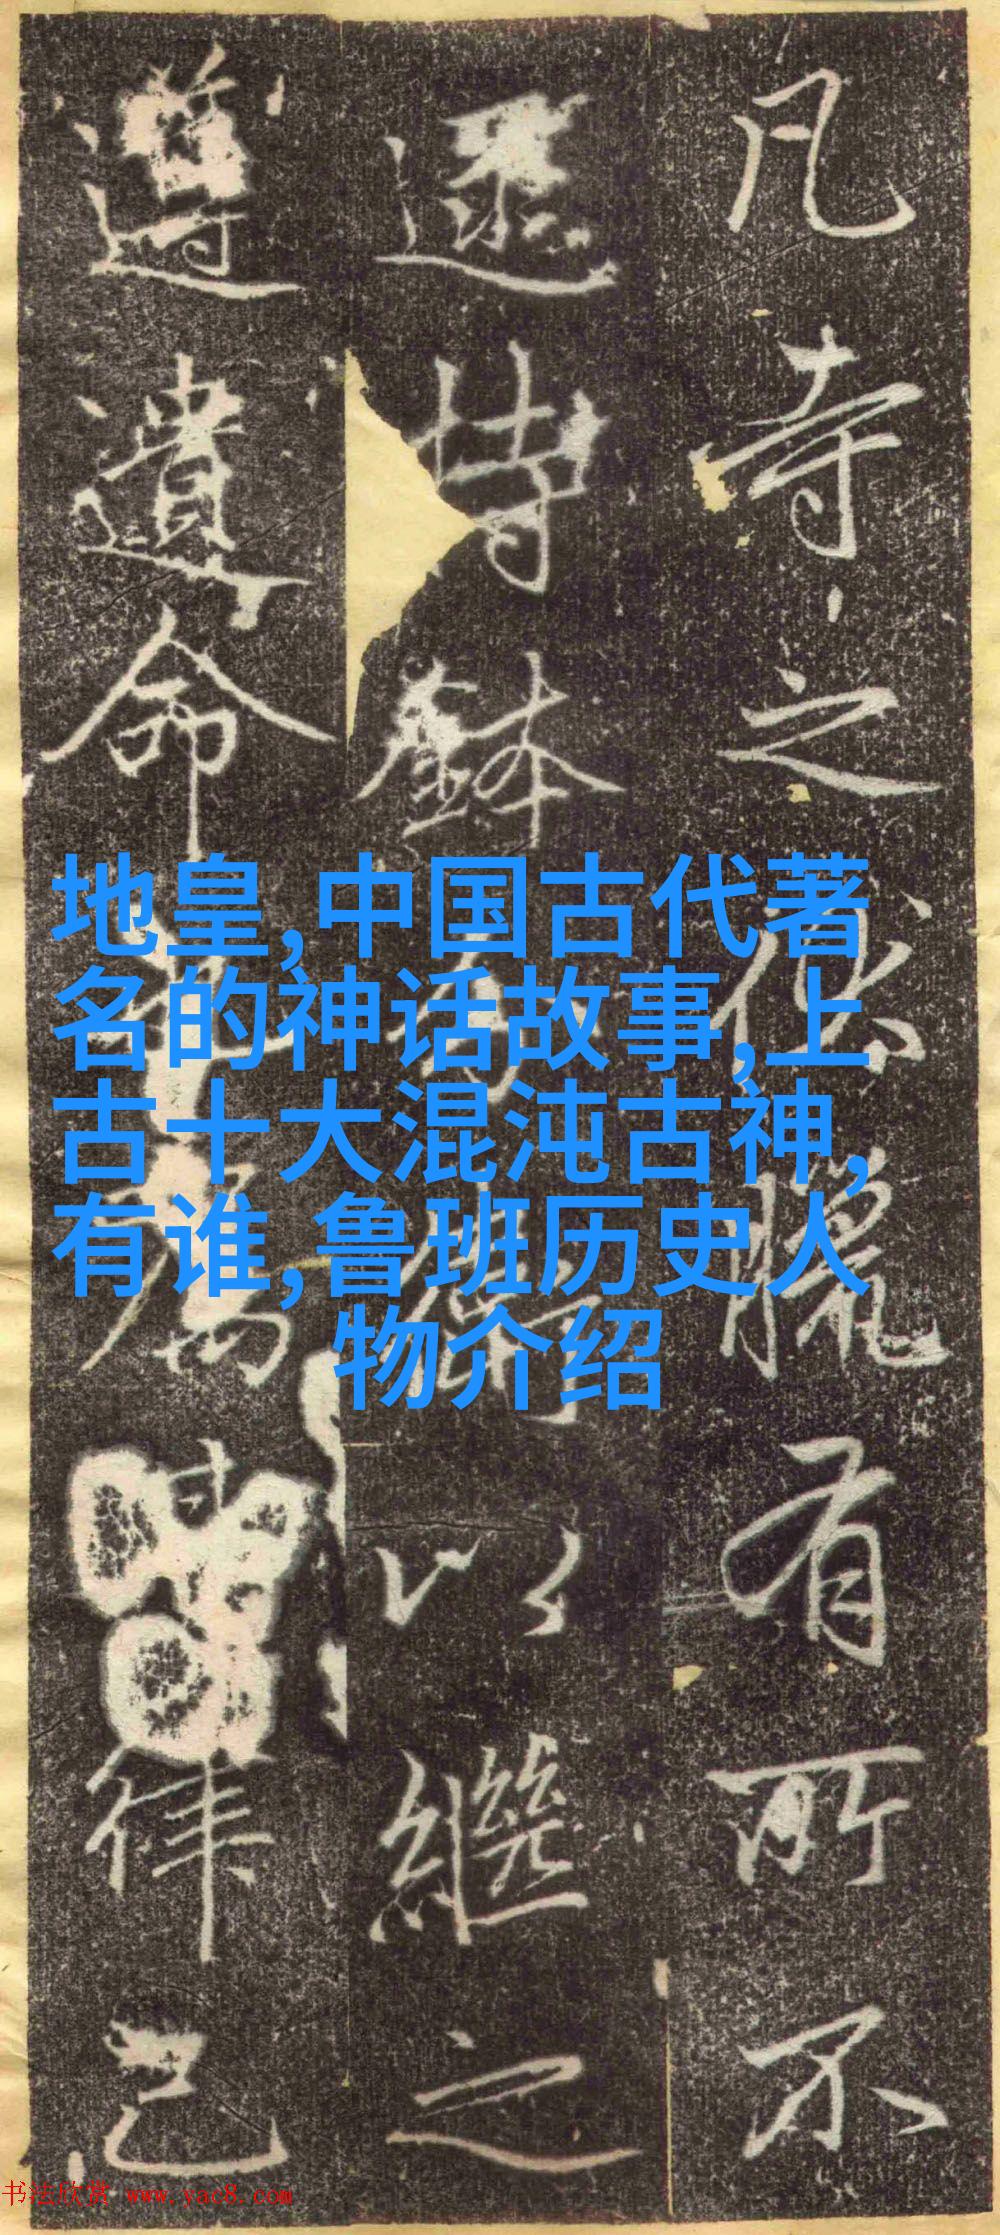 凡寺之伏臘有所不
持鉢以繼之
遵遺命律己
地皇,中国古代著
名的神话故事,上
古十大混沌古神,
有谁,鲁班历史人
物介绍
书法欣赏 www.yac8.com